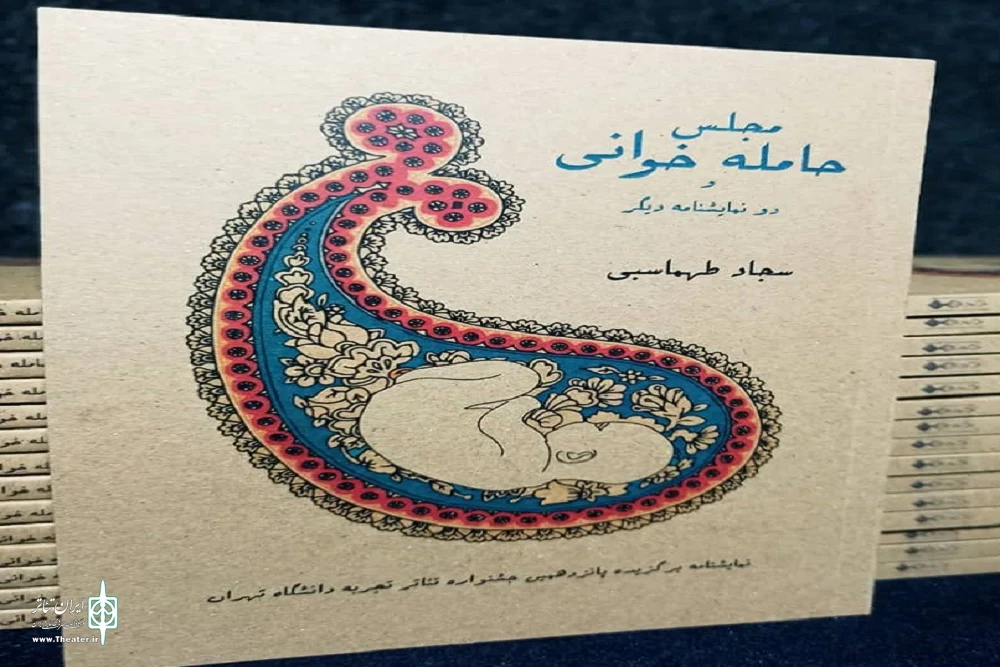 مجلس
حامله خوانی
و
دو نمایشنامه دیگر
سجاد طهماسبی
نمایشنامه برگزیده پانزدهمین جشنواره تئاتر تجربه دانشگاه تهران
ایران تئاتر
www.Theater.ir